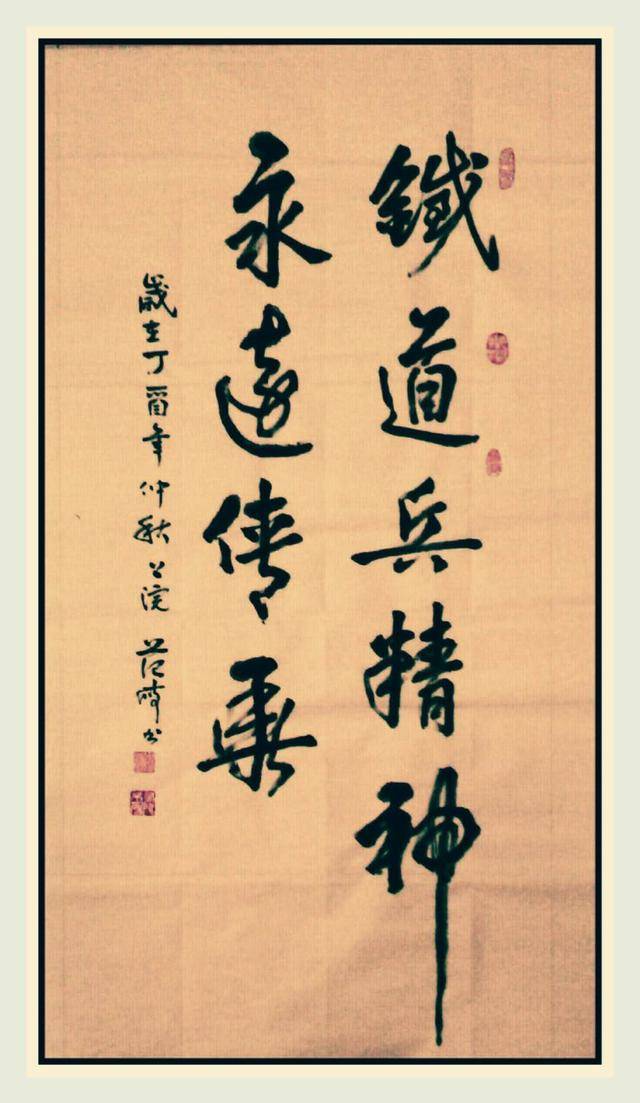 鐵道兵精神
永遠傳承
歲在丁酉年仲秋 院 范 书